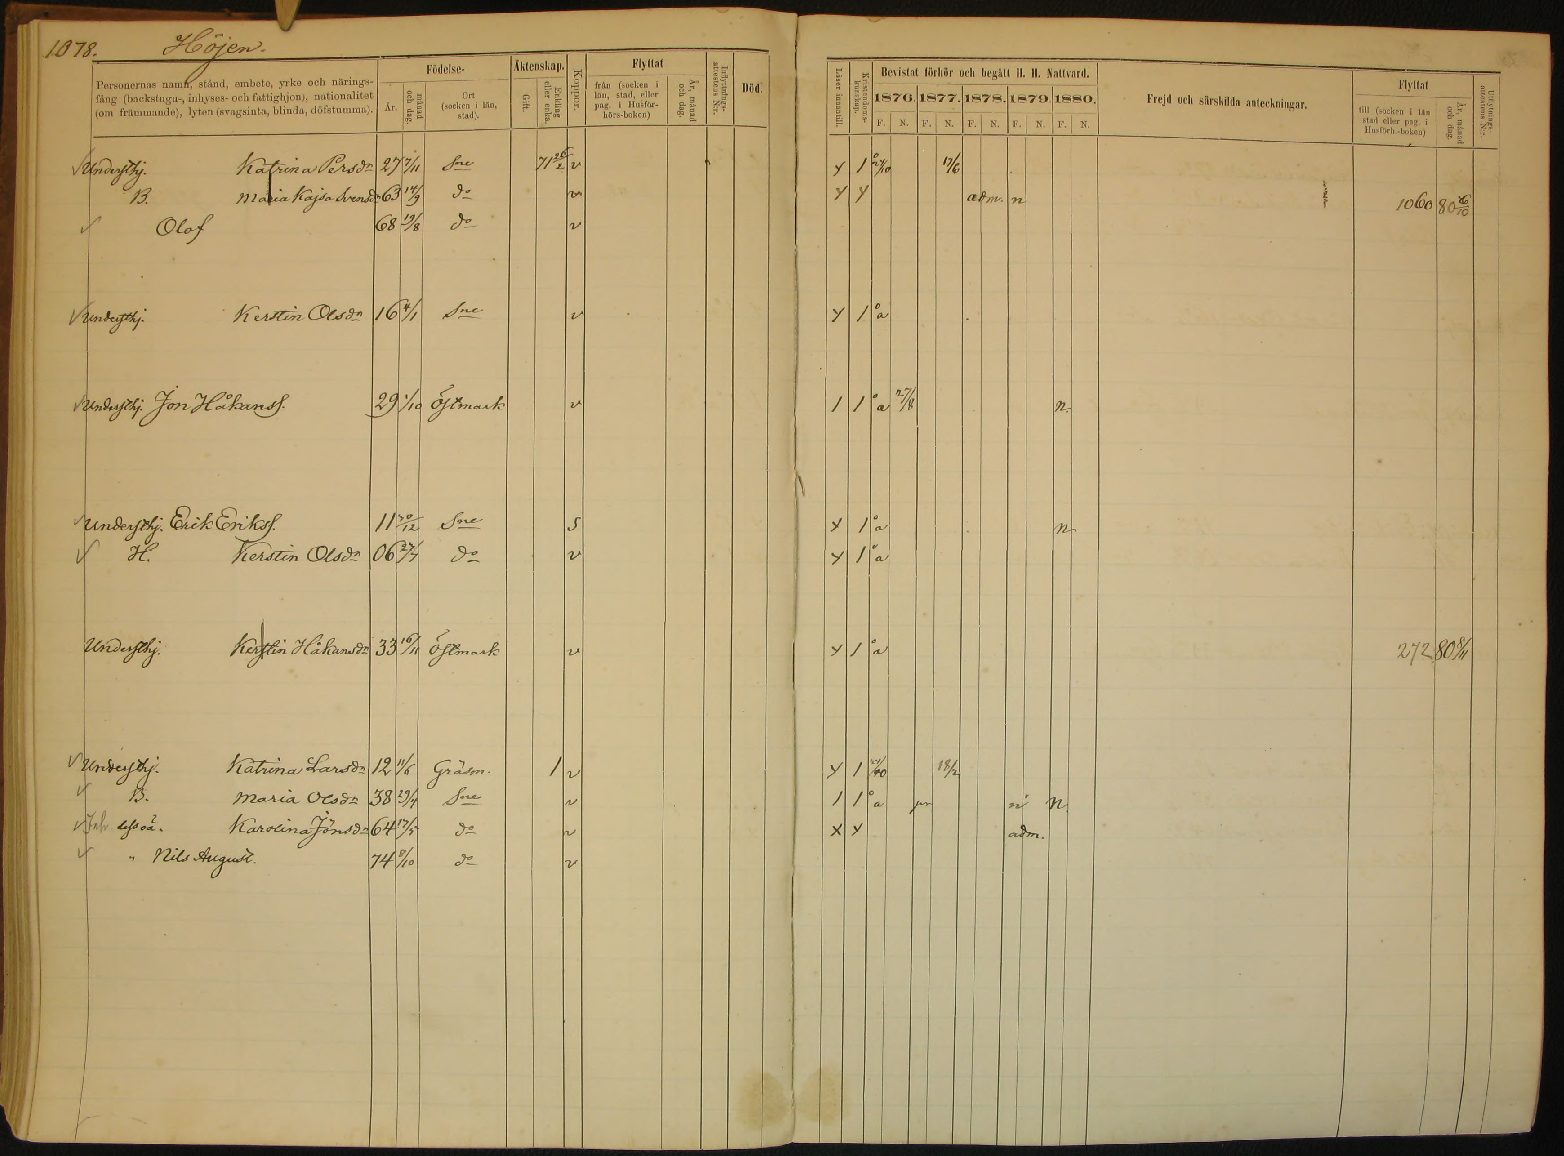 1078. Höjen.
Personernas namn, stånd, embete, yrke och närings-
fång (backstugu-, inhyses- och fattighjon), nationalitet
(om främmande), lyten (svagsinta, blinda, döfstumma).
Födelse-
År. månad och dag. Ort (socken i län, stad).
Äktenskap.
Gift. Enkling eller enka.
Koppor.
Flyttat
från (socken i län, stad, eller pag. i Husförhörs-boken) År, månad och dag.
Inflyttnings-attestens N:r.
Död.
Läser innantill. Kristendoms-kunskap.
Bevistat förhör och begått H. H. Nattvard.
1876. 1877. 1878. 1879. 1880.
F. N. F. N. F. N. F. N. F. N.
Frejd och särskilda anteckningar.
Flyttat
till (socken i län stad eller pag. i Husförh.-boken) År, månad och dag.
Utflyttnings-attestens N:r.
Understhj. Katrina Persdr 27 7/11 Sne 71 26/2 v y 1 å 17/6
B. Maria Kajsa Svensdr 63 14/9 do v y y adm. n 1060 80
Olof 68 19/8 do v
Understhj. Kerstin Olsdr 16 4/1 Sne v y 1 å a
Understhj. Jon Håkanss. 29 1/10 Östmark v 1 1 å a 27/8 n.
Understhj. Erik Erikss. 11 30/12 Sne s x 1 å a n
H. Kerstin Olsdr 06 27/7 do v y 1 å a
Understhj. Kerstin Håkansdr 33 16/11 Östmark v y 1 å a 272 80 8/11
Understhj. Katrina Larsdr 12 11/6 Gräsm. 1 v y 1 18/2
B. Maria Olsdr 38 29/4 Sne v 1 1 å a n n.
dess oä. Karolina Jönsdr 64 17/5 do v x x adm.
" Nils August. 74 9/10 do v